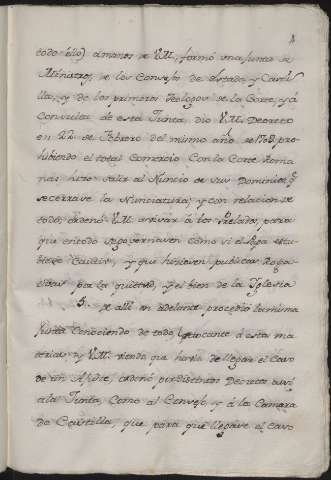 todo ello) à manos de V.M., formó una Junta de
Ministros, de los Consejos de Estado y Casti-
lla, y de los primeros Teologos de la Corte, y à
Consulta de esta Junta, dio V.M. Decreto
en 22 de Febrero del mismo año de 1709 pro-
hibiendo el total Comercio con la Corte Roma
na; hizo salir al Nuncio de sus Dominios, q
se cerrase la Nunciatura; y con relacion de
todo, ordenó V.M. avisar à los Prelados, para
que en todo se governasen como si el Papa estu-
biese, y que hiciesen publicas Roga-
tivas por la quietud, y el bien de la Iglesia
5. de alli en adelante procedio la misma
Junta conociendo de todo lo tocante à esta ma
teria; y V.M. viendo que havia de llegar el caso
de un, ordenó por distintos Decretos assi
à la Junta, como al Consejo, y à la Camara
de Castilla, que para que llegase el caso